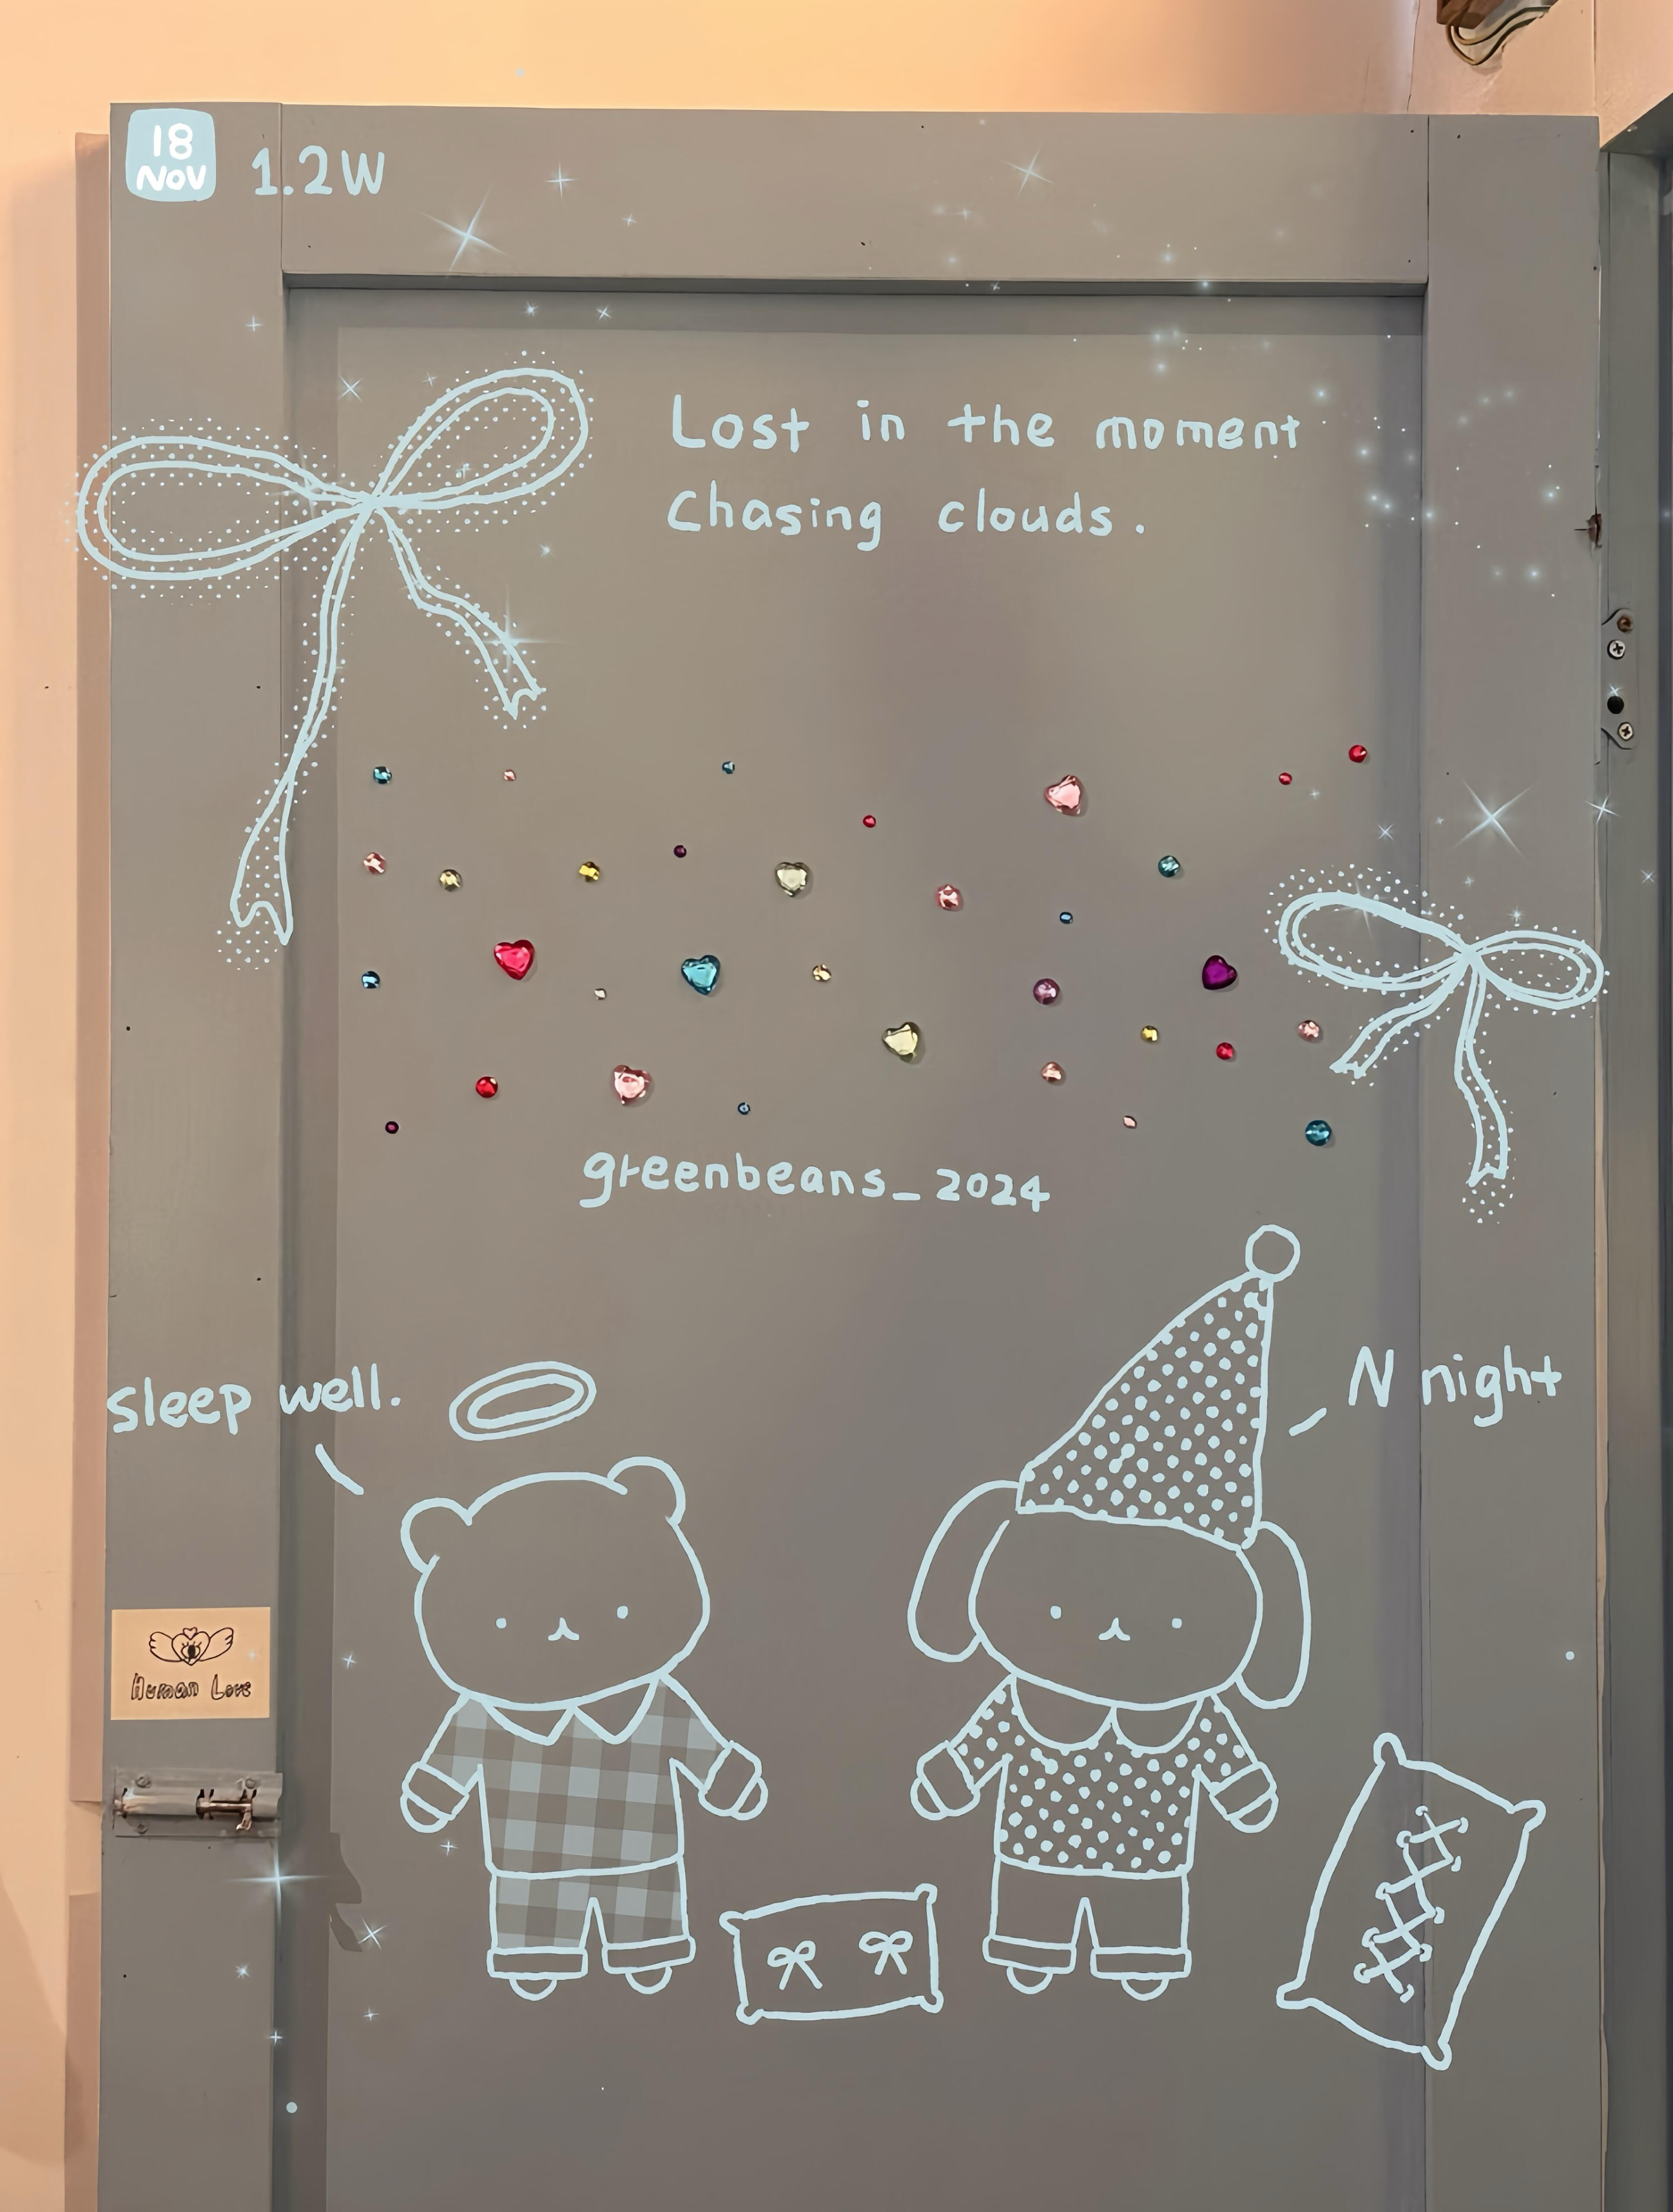 18
NOV
1.2W
Lost in the moment
Chasing clouds.
greenbeans_2024
sleep well.
N night
Human Love